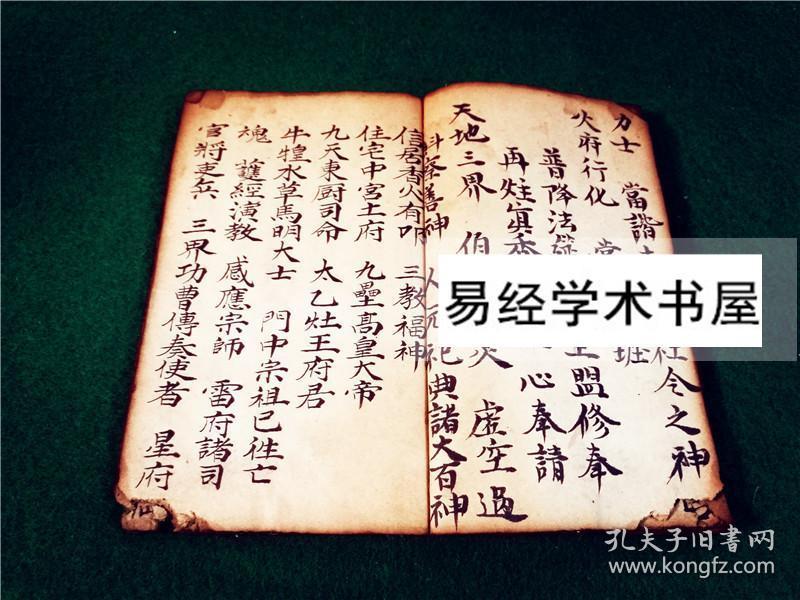 力士 當諧 社令之神
火府行化 堂 班
普降法 盟修奉
再炷真香 心奉請
天地三界 伯 灵 虛空過
斗奎善神 祀典諸大百神
信居香火有叩 三教福神
住宅中宮土府 九壘高皇大帝
九天東厨司命 太乙灶王府君
牛犍水草馬明大士 門中宗祖已徃亡
魂 護經演教 感應宗師 雷府諸司
官將吏兵 三界功曹傳奏使者 星府
易经学术书屋
孔夫子旧书网
www.kongfz.com